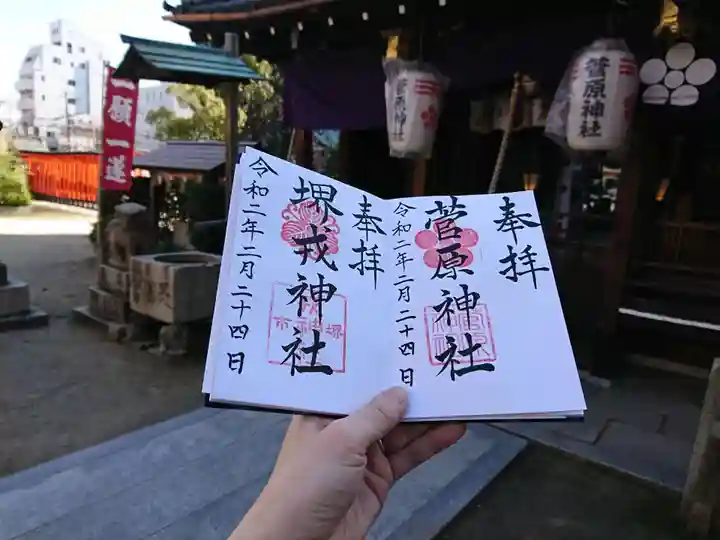 奉拝
菅原神社
令和二年二月二十四日
奉拝
堺戎神社
令和二年二月二十四日
菅原神社
菅原神社
一願一遂